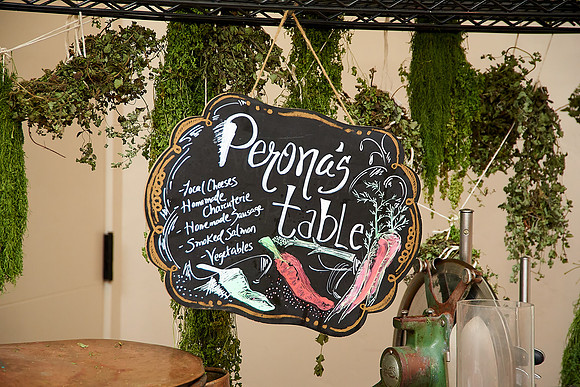 Perona's
table
- Local Cheeses
- Homemade
Charcuterie
- Homemade Sausage
- Smoked Salmon
- Vegetables